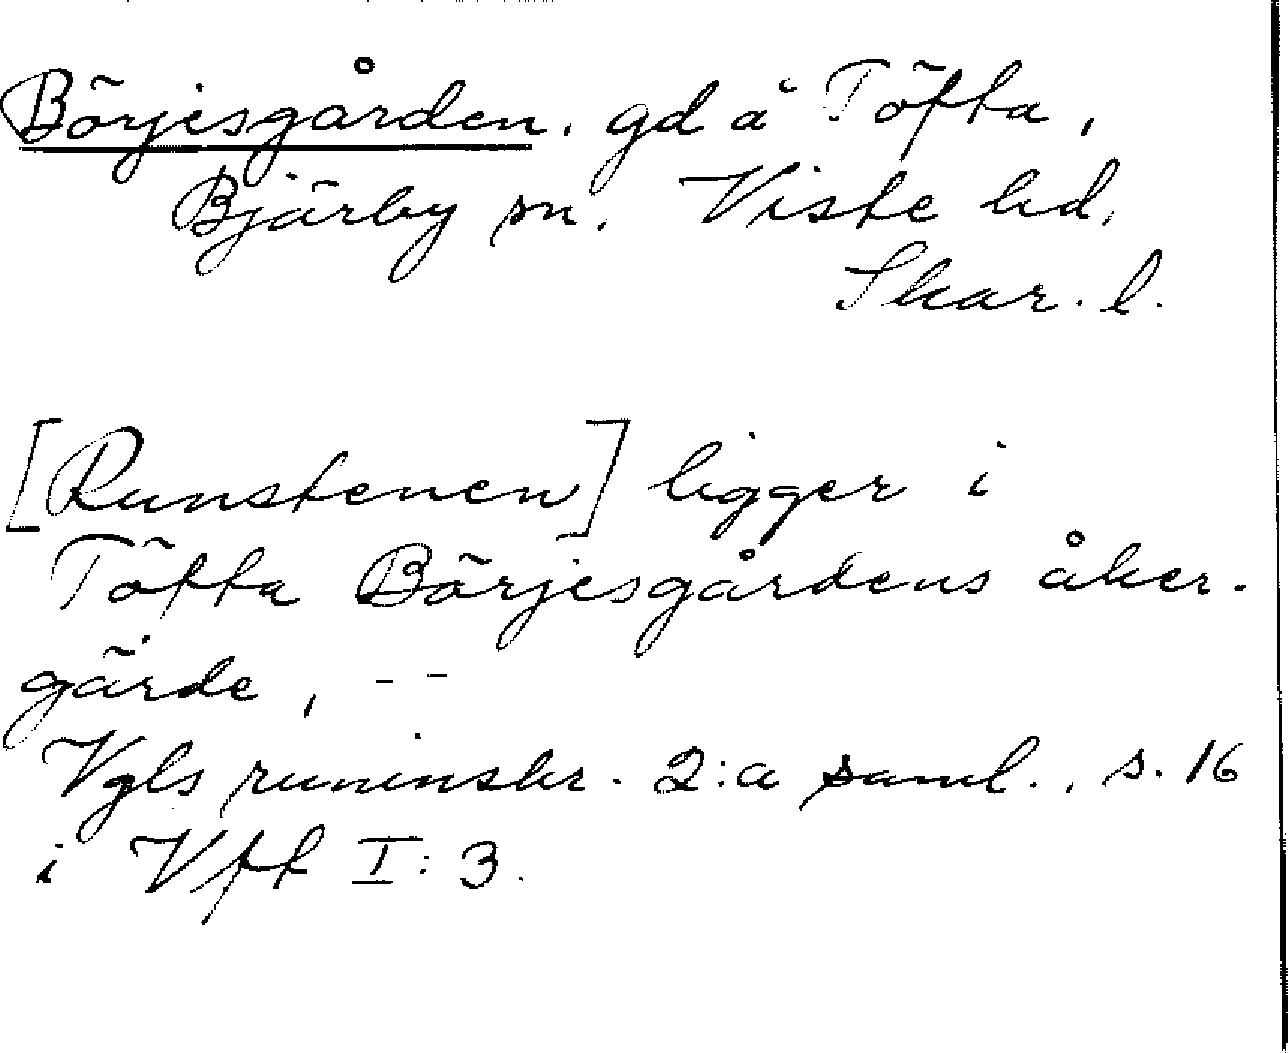 Börjesgården. gd å Töfta,
Bjärby sn. Viste hd.
Skar. l.
[Runstenen] ligger i
Töfta Börjesgårdens åker-
gärde, - -
Vgls runinskr. 2:a saml., s. 16
i Vft I: 3.